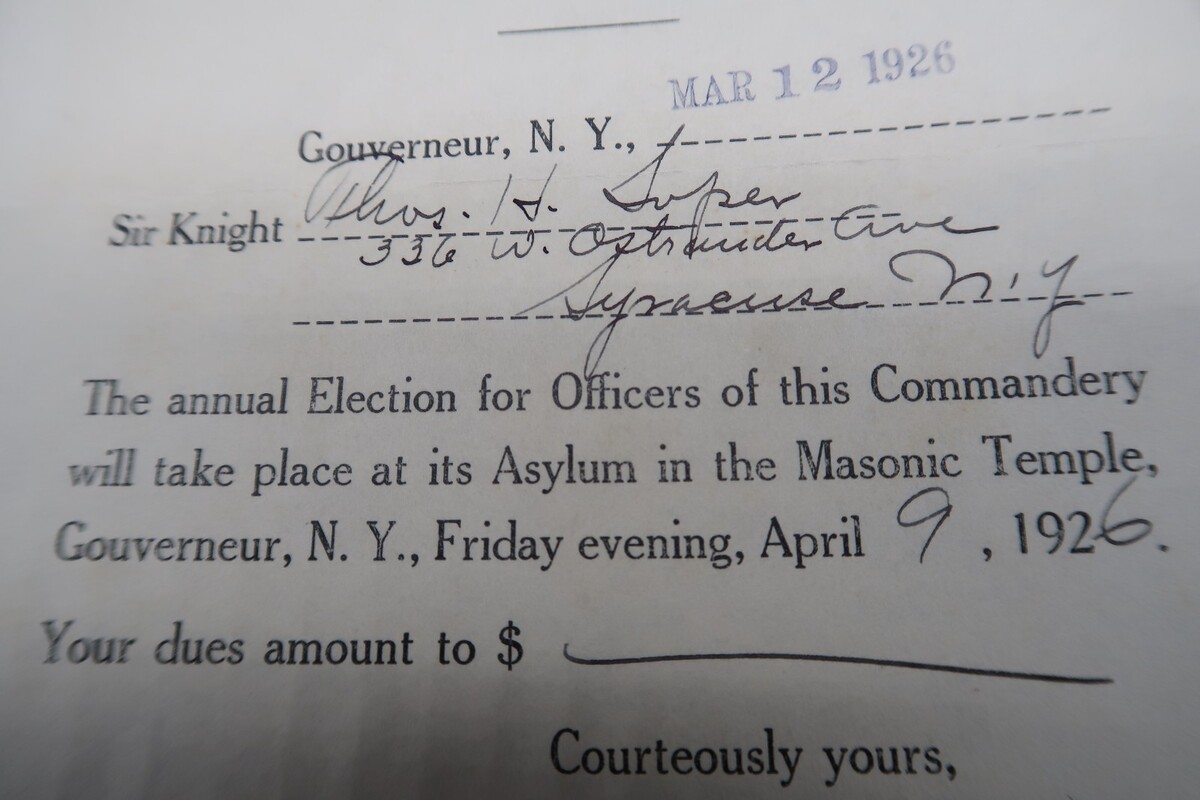 MAR 12 1926
Gouverneur, N. Y.,
Sir Knight Thos. H. Soper
336 W. Ostrander Ave
Syracuse N.Y
The annual Election for Officers of this Commandery
will take place at its Asylum in the Masonic Temple,
Gouverneur, N. Y., Friday evening, April 9, 1926.
Your dues amount to $
Courteously yours,